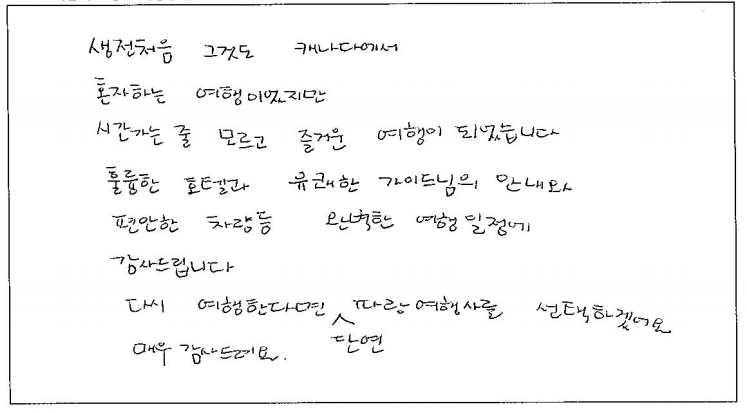 생전처음 그것도 캐나다에서
혼자하는 여행이었지만
시간가는 줄 모르고 즐거운 여행이 되었습니다
훌륭한 호텔과 유쾌한 가이드님의 안내와
편안한 차량등 완벽한 여행일정에
감사드립니다
다시 여행한다면 단연 파랑여행사를 선택하겠어요
매우 감사드려요.